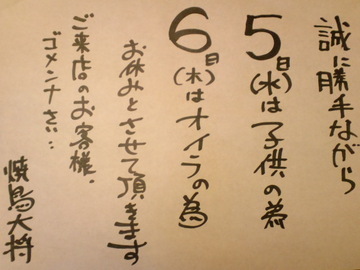 誠に勝手ながら
5日(水)は子供の為
6日(木)はオイラの為
お休みとさせて頂きます
ご来店のお客様、
ゴメンナさい:
焼鳥大将